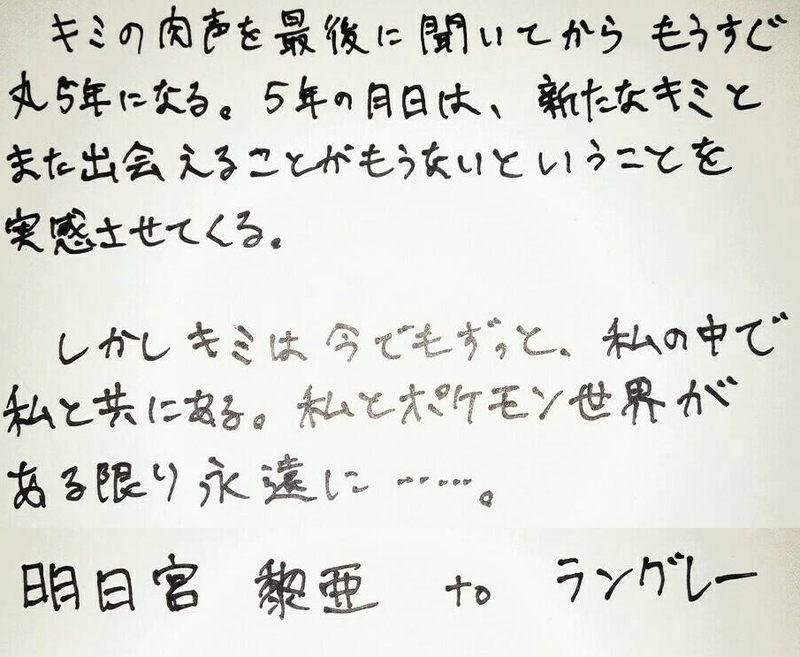 キミの肉声を最後に聞いてから もうすぐ
丸5年になる。5年の月日は、新たなキミと
また出会えることがもうないということを
実感させてくる。
しかしキミは今でもずっと、私の中で
私と共にある。私とポケモン世界が
ある限り永遠に……。
明日宮 黎亜 to ラングレー